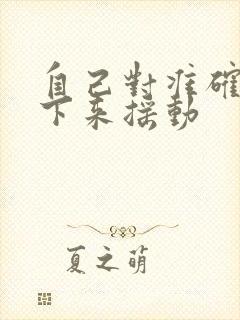 自己對准確
下来摇動
夏之萌